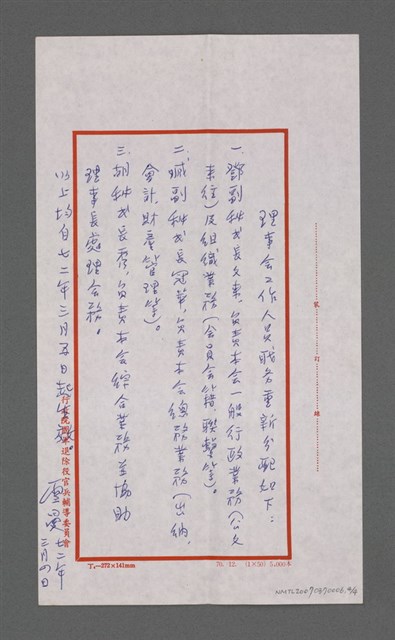 理事会工作人員職务重新分配如下：
一、鄧副秘书長文來，負責本会一般行政業務（公文
來往）及組織業務（会員会籍、聯繫等）。
二、臧副秘书長冠華，負責本会總務業務（出納、
會計、財產管理等）。
三、胡秘书長秀，負責本会綜合業務並協助
理事長處理会務。
以上均自七二年三月五日起生效。
七二年
三月四日
行政院國軍退除役官兵輔導委員會
裝 訂 線
T4—272×141mm
70. 12. (1×50) 5,000本
NMTL20070970006